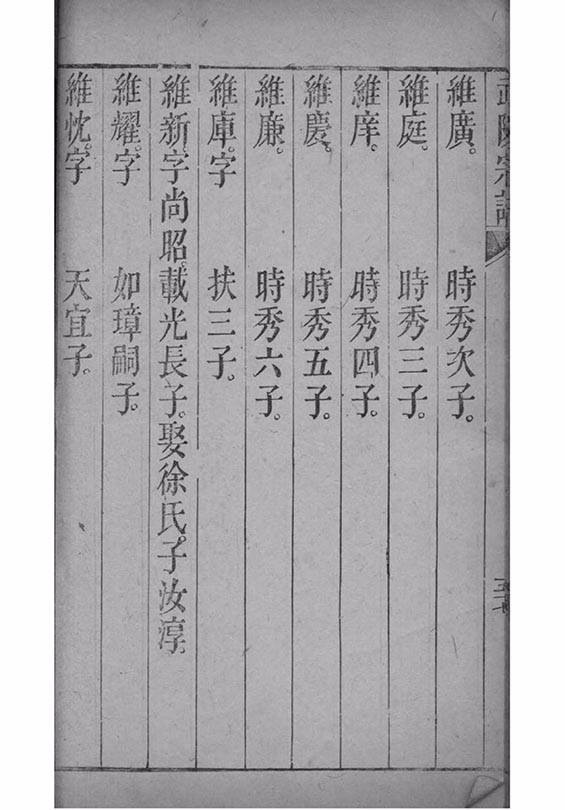 維廣。時秀次子。
維庭。時秀三子。
維庠。時秀四子。
維慶。時秀五子。
維廉。時秀六子。
維庫。字 扶三子。
維新。字尚昭。載光長子。娶徐氏。子汝淳。
維耀。字 如璋嗣子。
維忱。字 天宜子。